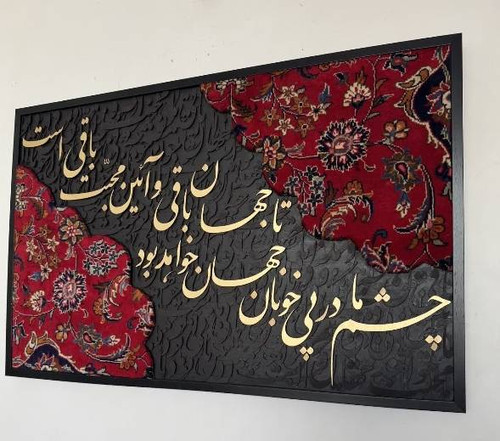 تا جهان باقی و آئین محبّت باقی است
چشم ما در پی خوبان جهان خواهد بود